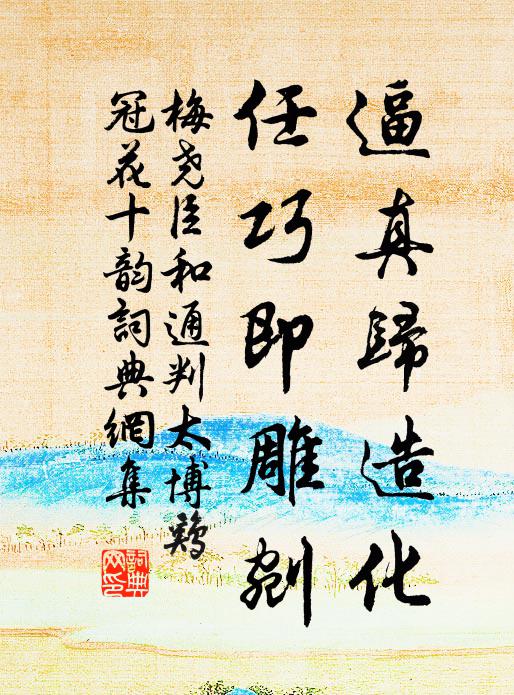 逼真歸造化
任巧即雕剜
梅尧臣和通判太博鷄
冠花十韵詞典網集